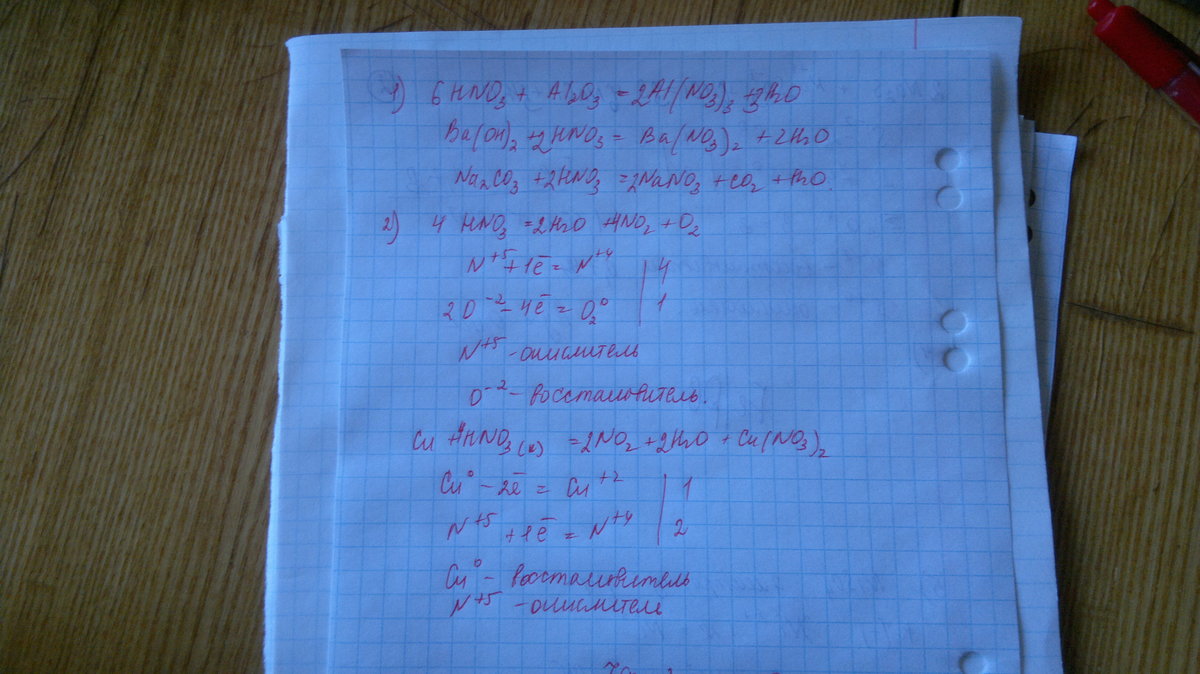 1) 6HNO₃ + Al₂O₃ = 2Al(NO₃)₃ + 3H₂O
Ba(OH)₂ + 2HNO₃ = Ba(NO₃)₂ + 2H₂O
Na₂CO₃ + 2HNO₃ = 2NaNO₃ + CO₂ + H₂O.
2) 4 HNO₃ = 2H₂O + 4NO₂ + O₂
N⁺⁵ + 1ē = N⁺⁴ | 4
2O⁻² - 4ē = O₂⁰ | 1
N⁺⁵ - окислитель
O⁻² - восстановитель.
Cu + 4HNO₃(к) = 2NO₂ + 2H₂O + Cu(NO₃)₂
Cu⁰ - 2ē = Cu⁺² | 1
N⁺⁵ + 1ē = N⁺⁴ | 2
Cu⁰ - восстановитель
N⁺⁵ - окислитель